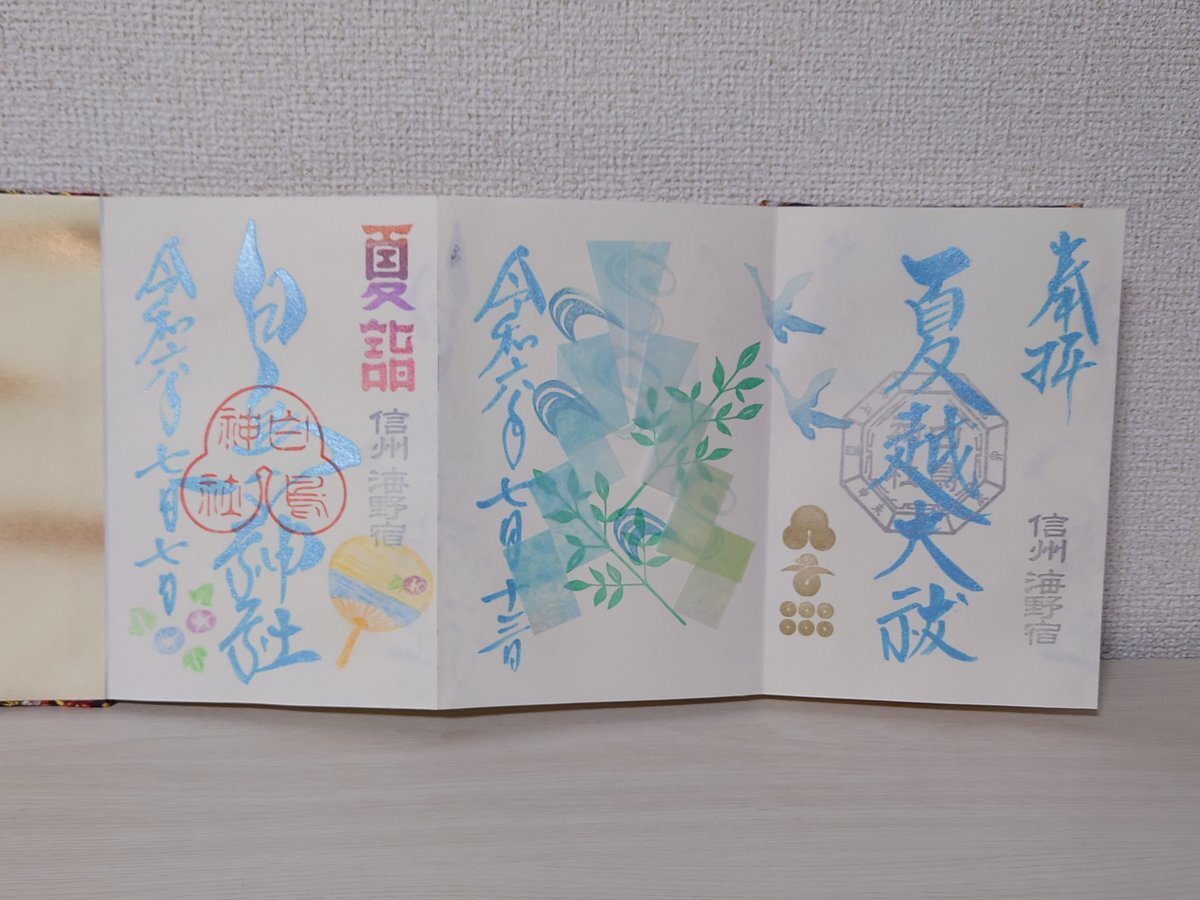 奉拝
夏越大祓
信州 海野宿
令和六年七月十三日
夏詣
信州 海野宿
白鳥神社
白鳥神社
令和六年七月七日